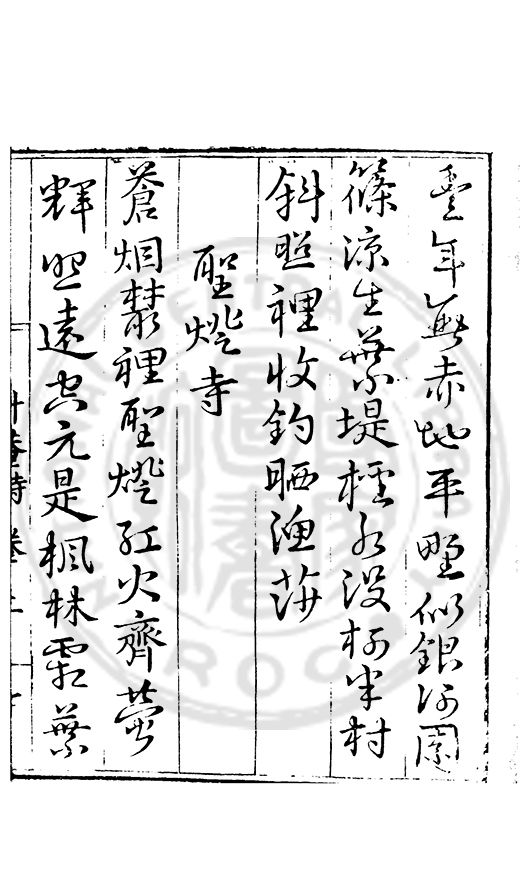 豐年無赤地平野似銀河園
篠涼生葉堤檉水沒柯半村
斜照裡收釣晒漁莎
聖燈寺
蒼烟叢裡聖燈紅火齊熒
輝照遠空元是楓林霜葉